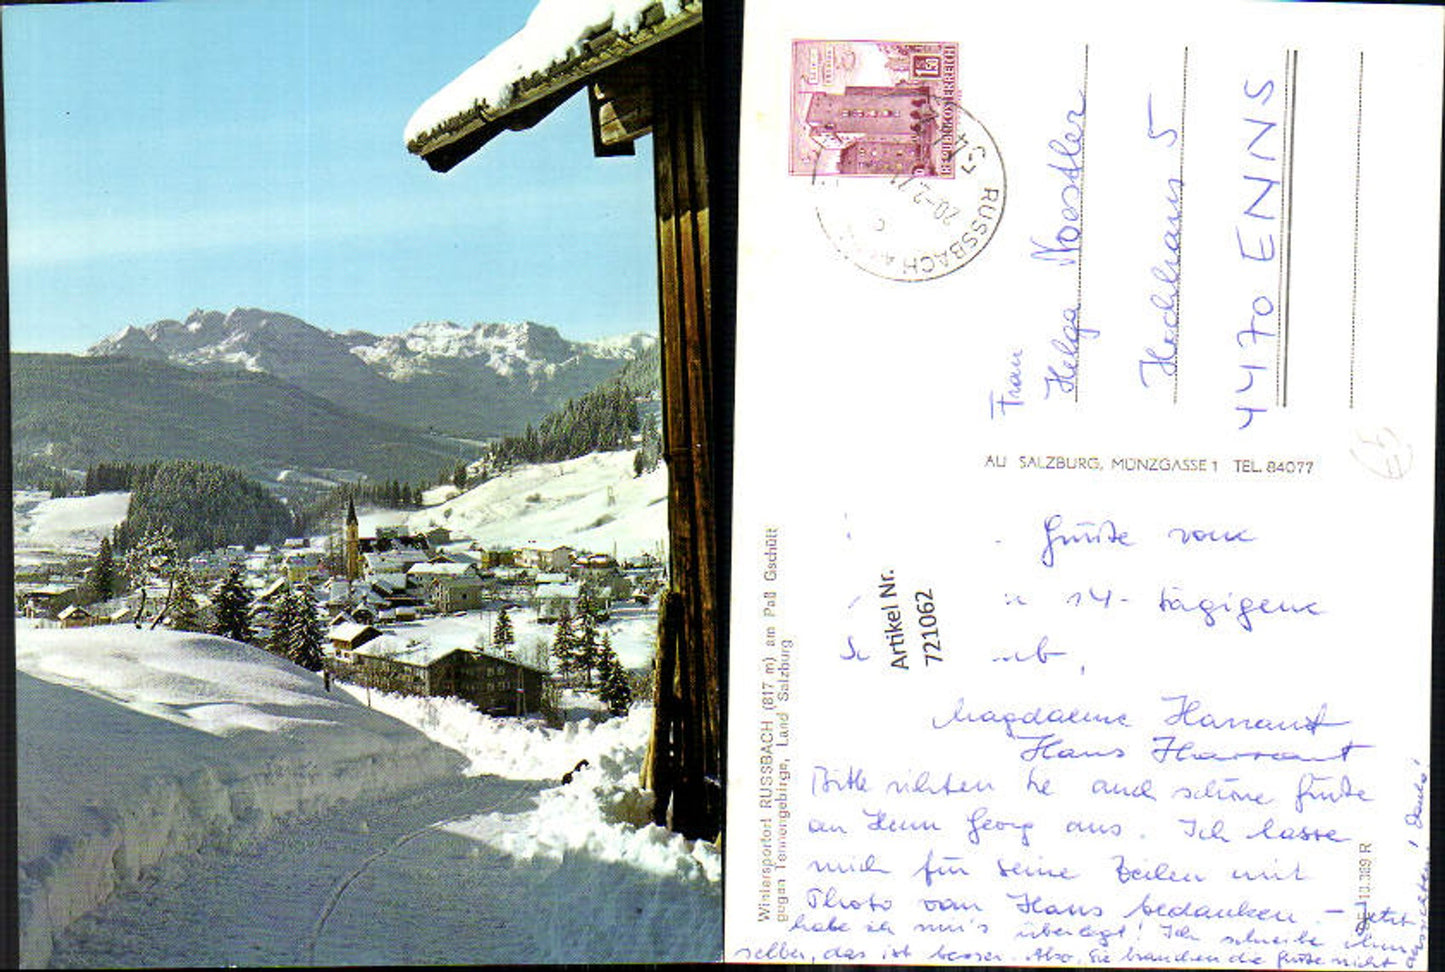 S 1.50
REPUBLIK ÖSTERREICH
RUSSBACH
20.-2.71
Frau
Helga Noestler
Hochhaus 5
4470 ENNS
SALZBURG, MÜNZGASSE 1 TEL. 84077
Grüße vom
14-tägigem
Artikel Nr.
721062
Magdalena Harrant
Hans Harrant
Bitte richten Sie auch schöne Grüße
an Herrn Georg aus. Ich lasse
mich für seine Zeilen mit
Photo von Hans bedanken. - Jetzt
habe ich mir's überlegt! Ich schreibe ihm
selber, das ist besser. Also, Sie brauchen die Grüße nicht
ausrichten! Danke!
Wintersportort RUSSBACH (817 m) am Paß Gschütt
gegen Tennengebirge, Land Salzburg